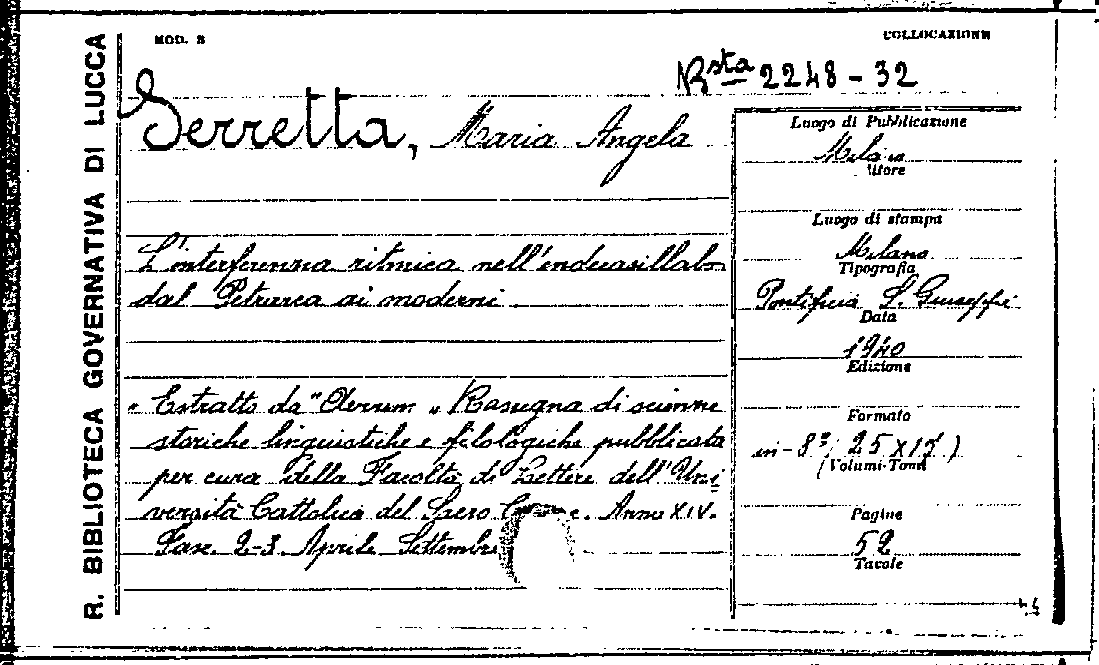 MOD. B
COLLOCAZIONE
R. BIBLIOTECA GOVERNATIVA DI LUCCA
Bsta 2248 - 32
Serretta, Maria Angela
L'interferenza ritmica nell'endecasillabo
dal Petrarca ai moderni.
Estratto da "Aevum" Rassegna di scienze
storiche linguistiche e filologiche pubblicata
per cura della Facoltà di Lettere dell'Uni
versità Cattolica del Sacro Cuore. Anno XIV.
Fasc. 2-3. Aprile Settembre
Luogo di Pubblicazione
Milano
Luogo di stampa
Milano
Tipografia
Pontificia S. Giuseppe
Data
1940
Edizione
Formato
in-8° (25 X 17)
(Volumi-Tomi
Pagine
52
Tavole